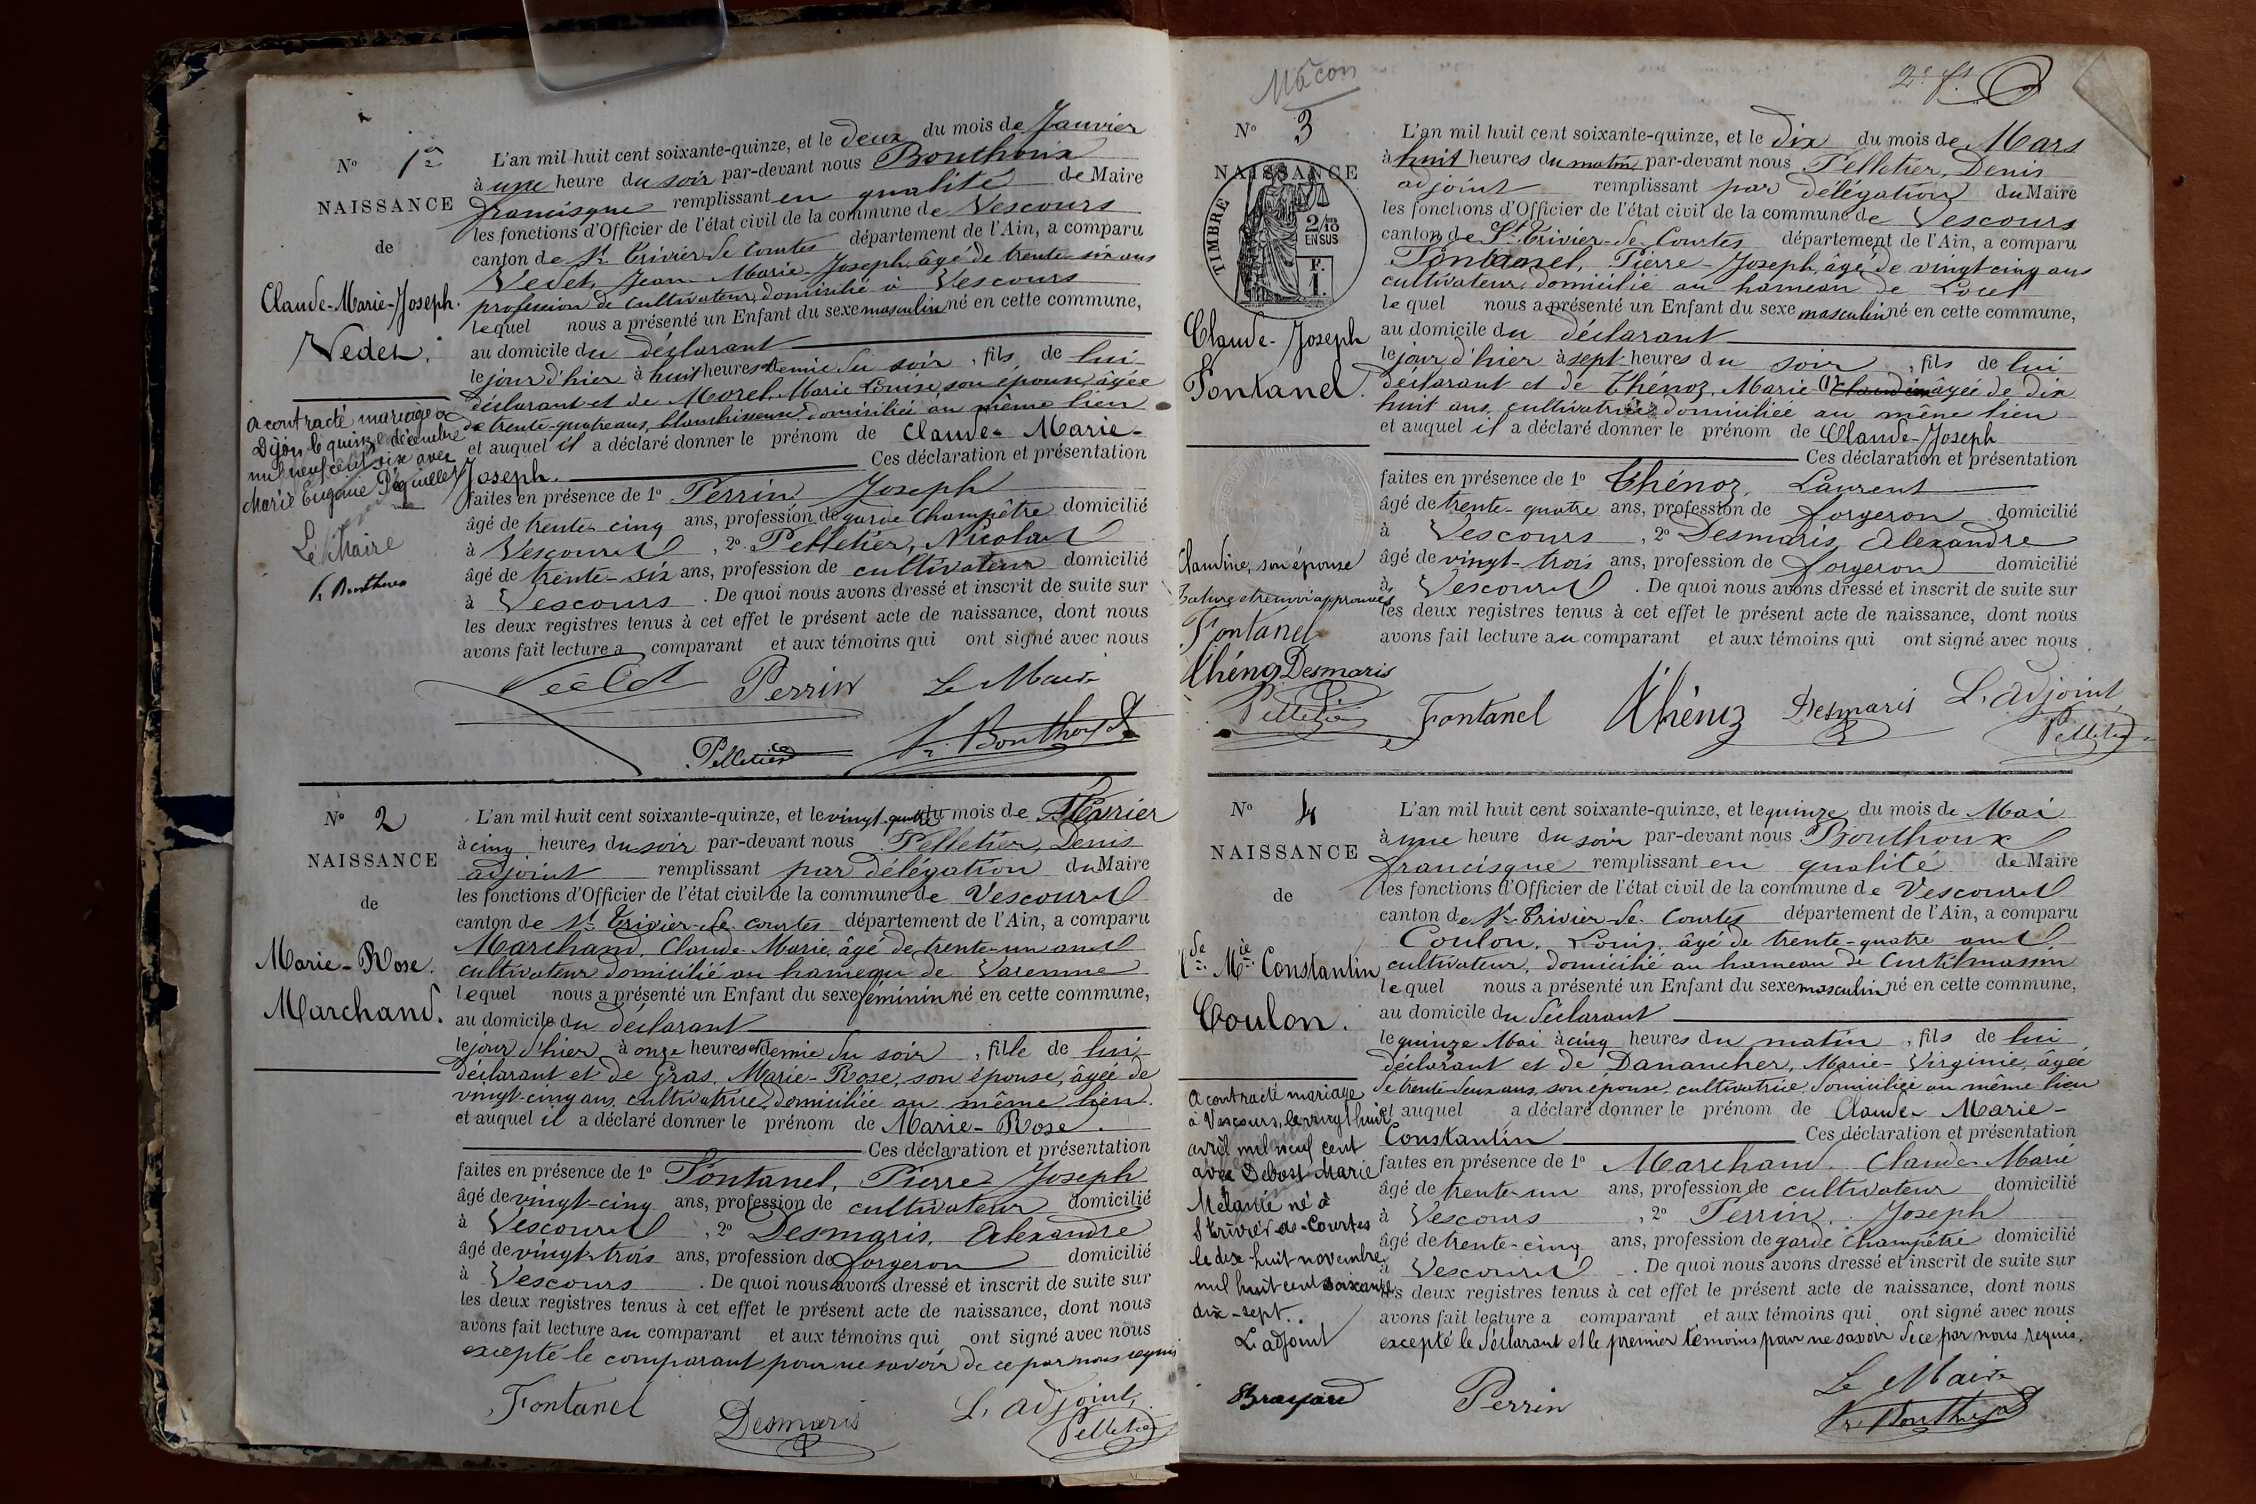 N° 1er
NAISSANCE
de
Claude-Marie-Joseph.
Vedet.
a contracté mariage à
Dijon le quinze décembre
mil neuf cent six avec
Marie Eugénie
Le Maire
Fr Bouthoux
L'an mil huit cent soixante-quinze, et le deux du mois de Janvier
à une heure du soir par-devant nous Bouthoux
francisque remplissant en qualité de Maire
les fonctions d'Officier de l'état civil de la commune de Vescours
canton de St Trivier-de-Courtes département de l'Ain, a comparu
Vedet, Jean-Marie-Joseph, âgé de trente-six ans
profession de cultivateur, domicilié à Vescours
lequel nous a présenté un Enfant du sexe masculin né en cette commune,
au domicile du déclarant
le jour d'hier à huit heures et demie du soir, fils de lui
déclarant et de Morel, Marie Louise, son épouse, âgée
de trente-quatre ans, blanchisseuse domiciliée au même lieu
et auquel il a déclaré donner le prénom de Claude-Marie-
Joseph. Ces déclaration et présentation
faites en présence de 1° Perrin Joseph
âgé de trente-cinq ans, profession de garde champêtre domicilié
à Vescours, 2° Pelletier, Nicolas
âgé de trente-six ans, profession de cultivateur domicilié
à Vescours. De quoi nous avons dressé et inscrit de suite sur
les deux registres tenus à cet effet le présent acte de naissance, dont nous
avons fait lecture a comparant et aux témoins qui ont signé avec nous
Vedet Perrin Le Maire
Pelletier Fr. Bouthoux
N° 2
NAISSANCE
de
Marie-Rose.
Marchand.
L'an mil huit cent soixante-quinze, et le vingt-quatre du mois de Février
à cinq heures du soir par-devant nous Pelletier, Denis
adjoint remplissant par délégation du Maire
les fonctions d'Officier de l'état civil de la commune de Vescours
canton de St Trivier-de-Courtes département de l'Ain, a comparu
Marchand, Claude-Marie, âgé de trente-un ans
cultivateur domicilié au hameau de Varenne
lequel nous a présenté un Enfant du sexe féminin né en cette commune,
au domicile du déclarant
le jour d'hier à onze heures et demie du soir, fille de lui
déclarant et de Gras, Marie-Rose, son épouse, âgée de
vingt-cinq ans, cultivatrice, domiciliée au même lieu
et auquel il a déclaré donner le prénom de Marie-Rose.
Ces déclaration et présentation
faites en présence de 1° Fontanel, Pierre Joseph
âgé de vingt-cinq ans, profession de cultivateur domicilié
à Vescours, 2° Desmaris, Alexandre
âgé de vingt-trois ans, profession de forgeron domicilié
à Vescours. De quoi nous avons dressé et inscrit de suite sur
les deux registres tenus à cet effet le présent acte de naissance, dont nous
avons fait lecture au comparant et aux témoins qui ont signé avec nous
excepté le comparant pour ne savoir de ce par nous requis
Fontanel Desmaris L'adjoint,
Pelletier
Mâcon
2e ft
N° 3
NAISSANCE
TIMBRE
2/10
EN SUS
F.
1.
Claude-Joseph
Fontanel.
Claudine, son épouse
Rature et renvoi approuvés
Fontanel
Thénoz Desmaris
Pelletier
L'an mil huit cent soixante-quinze, et le dix du mois de Mars
à huit heures du matin par-devant nous Pelletier, Denis
adjoint remplissant par délégation du Maire
les fonctions d'Officier de l'état civil de la commune de Vescours
canton de St Trivier-de-Courtes département de l'Ain, a comparu
Fontanel, Pierre-Joseph, âgé de vingt-cinq ans
cultivateur, domicilié au hameau de
lequel nous a présenté un Enfant du sexe masculin né en cette commune,
au domicile du déclarant
le jour d'hier à sept heures du soir, fils de lui
déclarant et de Thénoz, Marie Claudine âgée de dix
huit ans, cultivatrice domiciliée au même lieu
et auquel il a déclaré donner le prénom de Claude-Joseph
Ces déclaration et présentation
faites en présence de 1° Thénoz, Laurent
âgé de trente-quatre ans, profession de forgeron domicilié
à Vescours, 2° Desmaris Alexandre
âgé de vingt-trois ans, profession de forgeron domicilié
à Vescours. De quoi nous avons dressé et inscrit de suite sur
les deux registres tenus à cet effet le présent acte de naissance, dont nous
avons fait lecture au comparant et aux témoins qui ont signé avec nous.
Fontanel Thénoz Desmaris L'adjoint,
Pelletier
N° 4
NAISSANCE
de
Cde Mie Constantin
Coulon.
A contracté mariage
à Vescours, le vingt huit
avril mil neuf cent
avec Debost Marie
Mélanie né à
St Trivier-de-Courtes
le dix huit novembre
mil huit cent soixante
dix-sept.
L'adjoint
Brayard
L'an mil huit cent soixante-quinze, et le quinze du mois de Mai
à une heure du soir par-devant nous Bouthoux
francisque remplissant en qualité de Maire
les fonctions d'Officier de l'état civil de la commune de Vescours
canton de St Trivier-de-Courtes département de l'Ain, a comparu
Coulon, Louis, âgé de trente-quatre ans
cultivateur, domicilié au hameau de Curtilmassin
lequel nous a présenté un Enfant du sexe masculin né en cette commune,
au domicile du déclarant
le quinze Mai à cinq heures du matin, fils de lui
déclarant et de Danancher, Marie-Virginie, âgée
de trente-deux ans, son épouse, cultivatrice, domiciliée au même lieu
et auquel a déclaré donner le prénom de Claude-Marie-
Constantin Ces déclaration et présentation
faites en présence de 1° Marchand, Claude Marie
âgé de trente-un ans, profession de cultivateur domicilié
à Vescours, 2° Perrin, Joseph
âgé de trente-cinq ans, profession de garde champêtre domicilié
à Vescours. De quoi nous avons dressé et inscrit de suite sur
les deux registres tenus à cet effet le présent acte de naissance, dont nous
avons fait lecture a comparant et aux témoins qui ont signé avec nous
excepté le déclarant et le premier témoins pour ne savoir de ce par nous requis.
Perrin Le Maire
Fr Bouthoux